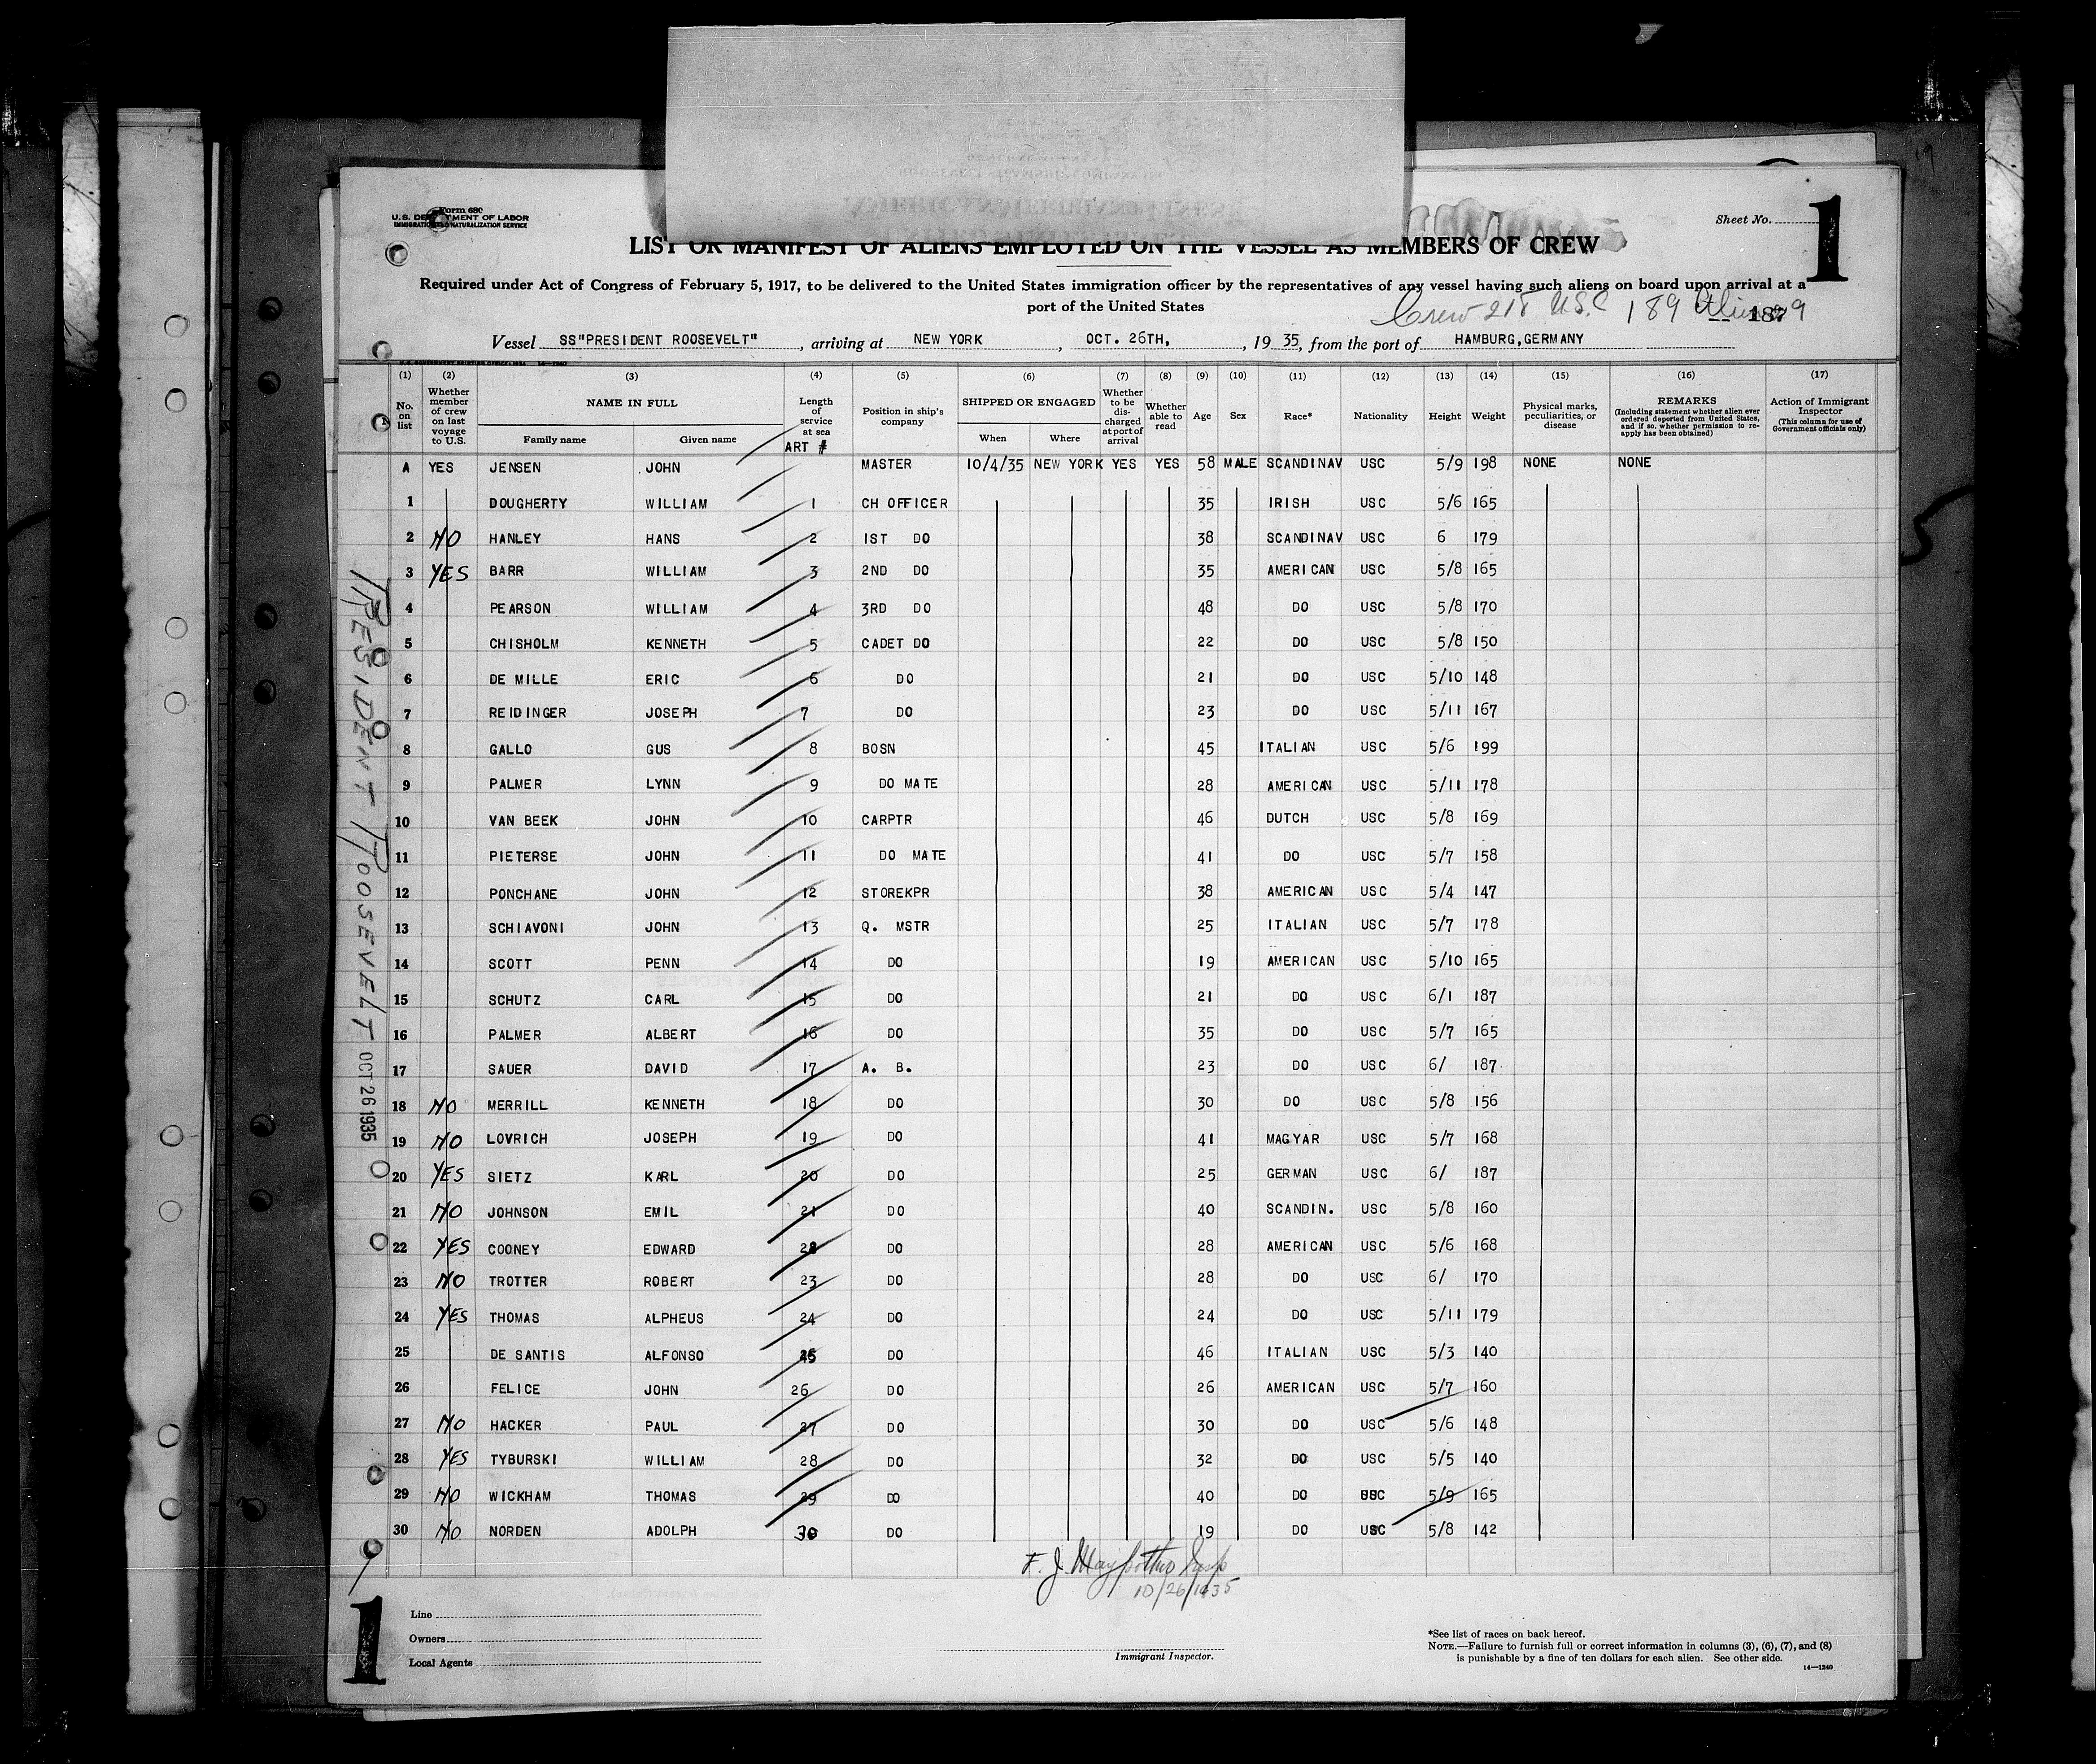 Form 680
U.S. DEPARTMENT OF LABOR
IMMIGRATION AND NATURALIZATION SERVICE
Sheet No. 1
LIST OR MANIFEST OF ALIENS EMPLOYED ON THE VESSEL AS MEMBERS OF CREW
Required under Act of Congress of February 5, 1917, to be delivered to the United States immigration officer by the representatives of any vessel having such aliens on board upon arrival at a
port of the United States
Crew 218 U.S.C 189 Aliens
Vessel SS"PRESIDENT ROOSEVELT", arriving at NEW YORK, OCT. 26TH, , 19 35, from the port of HAMBURG,GERMANY
(1) (2) (3) (4) (5) (6) (7) (8) (9) (10) (11) (12) (13) (14) (15) (16) (17)
No. on list
Whether member of crew on last voyage to U.S.
NAME IN FULL
Family name Given name
Length of service at sea
ART #
Position in ship's company
SHIPPED OR ENGAGED
When Where
Whether to be discharged at port of arrival
Whether able to read
Age Sex Race* Nationality Height Weight
Physical marks, peculiarities, or disease
REMARKS
(Including statement whether alien ever ordered deported from United States, and if so, whether permission to re-apply has been obtained)
Action of Immigrant Inspector
(This column for use of Government officials only)
A YES JENSEN JOHN MASTER 10/4/35 NEW YORK YES YES 58 MALE SCANDINAV USC 5/9 198 NONE NONE
1 DOUGHERTY WILLIAM 1 CH OFFICER 35 IRISH USC 5/6 165
2 NO HANLEY HANS 2 1ST DO 38 SCANDINAV USC 6 179
3 YES BARR WILLIAM 3 2ND DO 35 AMERICAN USC 5/8 165
4 PEARSON WILLIAM 4 3RD DO 48 DO USC 5/8 170
5 CHISHOLM KENNETH 5 CADET DO 22 DO USC 5/8 150
6 DE MILLE ERIC 6 DO 21 DO USC 5/10 148
7 REIDINGER JOSEPH 7 DO 23 DO USC 5/11 167
8 GALLO GUS 8 BOSN 45 ITALIAN USC 5/6 199
9 PALMER LYNN 9 DO MATE 28 AMERICAN USC 5/11 178
10 VAN BEEK JOHN 10 CARPTR 46 DUTCH USC 5/8 169
11 PIETERSE JOHN 11 DO MATE 41 DO USC 5/7 158
12 PONCHANE JOHN 12 STOREKPR 38 AMERICAN USC 5/4 147
13 SCHIAVONI JOHN 13 Q. MSTR 25 ITALIAN USC 5/7 178
14 SCOTT PENN 14 DO 19 AMERICAN USC 5/10 165
15 SCHUTZ CARL 15 DO 21 DO USC 6/1 187
16 PALMER ALBERT 16 DO 35 DO USC 5/7 165
17 SAUER DAVID 17 A. B. 23 DO USC 6/ 187
18 NO MERRILL KENNETH 18 DO 30 DO USC 5/8 156
19 NO LOVRICH JOSEPH 19 DO 41 MAGYAR USC 5/7 168
20 YES SIETZ KARL 20 DO 25 GERMAN USC 6/ 187
21 NO JOHNSON EMIL 21 DO 40 SCANDIN. USC 5/8 160
22 YES COONEY EDWARD 22 DO 28 AMERICAN USC 5/6 168
23 NO TROTTER ROBERT 23 DO 28 DO USC 6/ 170
24 YES THOMAS ALPHEUS 24 DO 24 DO USC 5/11 179
25 DE SANTIS ALFONSO 25 DO 46 ITALIAN USC 5/3 140
26 FELICE JOHN 26 DO 26 AMERICAN USC 5/7 160
27 NO HACKER PAUL 27 DO 30 DO USC 5/6 148
28 YES TYBURSKI WILLIAM 28 DO 32 DO USC 5/5 140
29 NO WICKHAM THOMAS 29 DO 40 DO USC 5/9 165
30 NO NORDEN ADOLPH 30 DO 19 DO USC 5/8 142
PRESIDENT ROOSEVELT OCT 26 1935
F. J.
10/26/1935
1
Line
Owners
Local Agents
Immigrant Inspector.
*See list of races on back hereof.
NOTE.—Failure to furnish full or correct information in columns (3), (6), (7), and (8)
is punishable by a fine of ten dollars for each alien. See other side.
14—1240